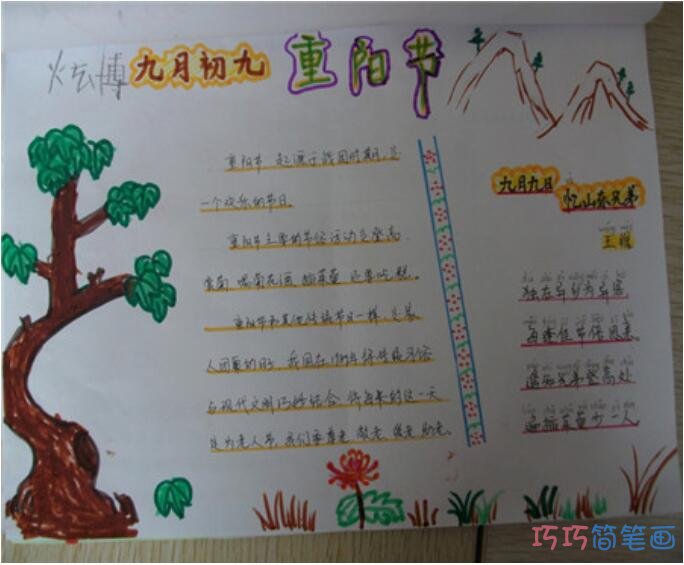 九月初九 重阳节
重阳节 起源于战国时期,是
一个欢乐的节日。
重阳节主要的节俗活动是登高
赏菊 喝菊花酒 插茱萸 还要吃糕。
重阳节和其他传统节日一样,是家
人团聚的日子 我国在1989年将传统习俗
与现代文明巧妙结合 将每年的这一天
定为老人节 我们要尊老 敬老 爱老 助老。
九月九日
忆山东兄弟
王维
独在异乡为异客
每逢佳节倍思亲
遥知兄弟登高处
遍插茱萸少一人
巧巧简笔画